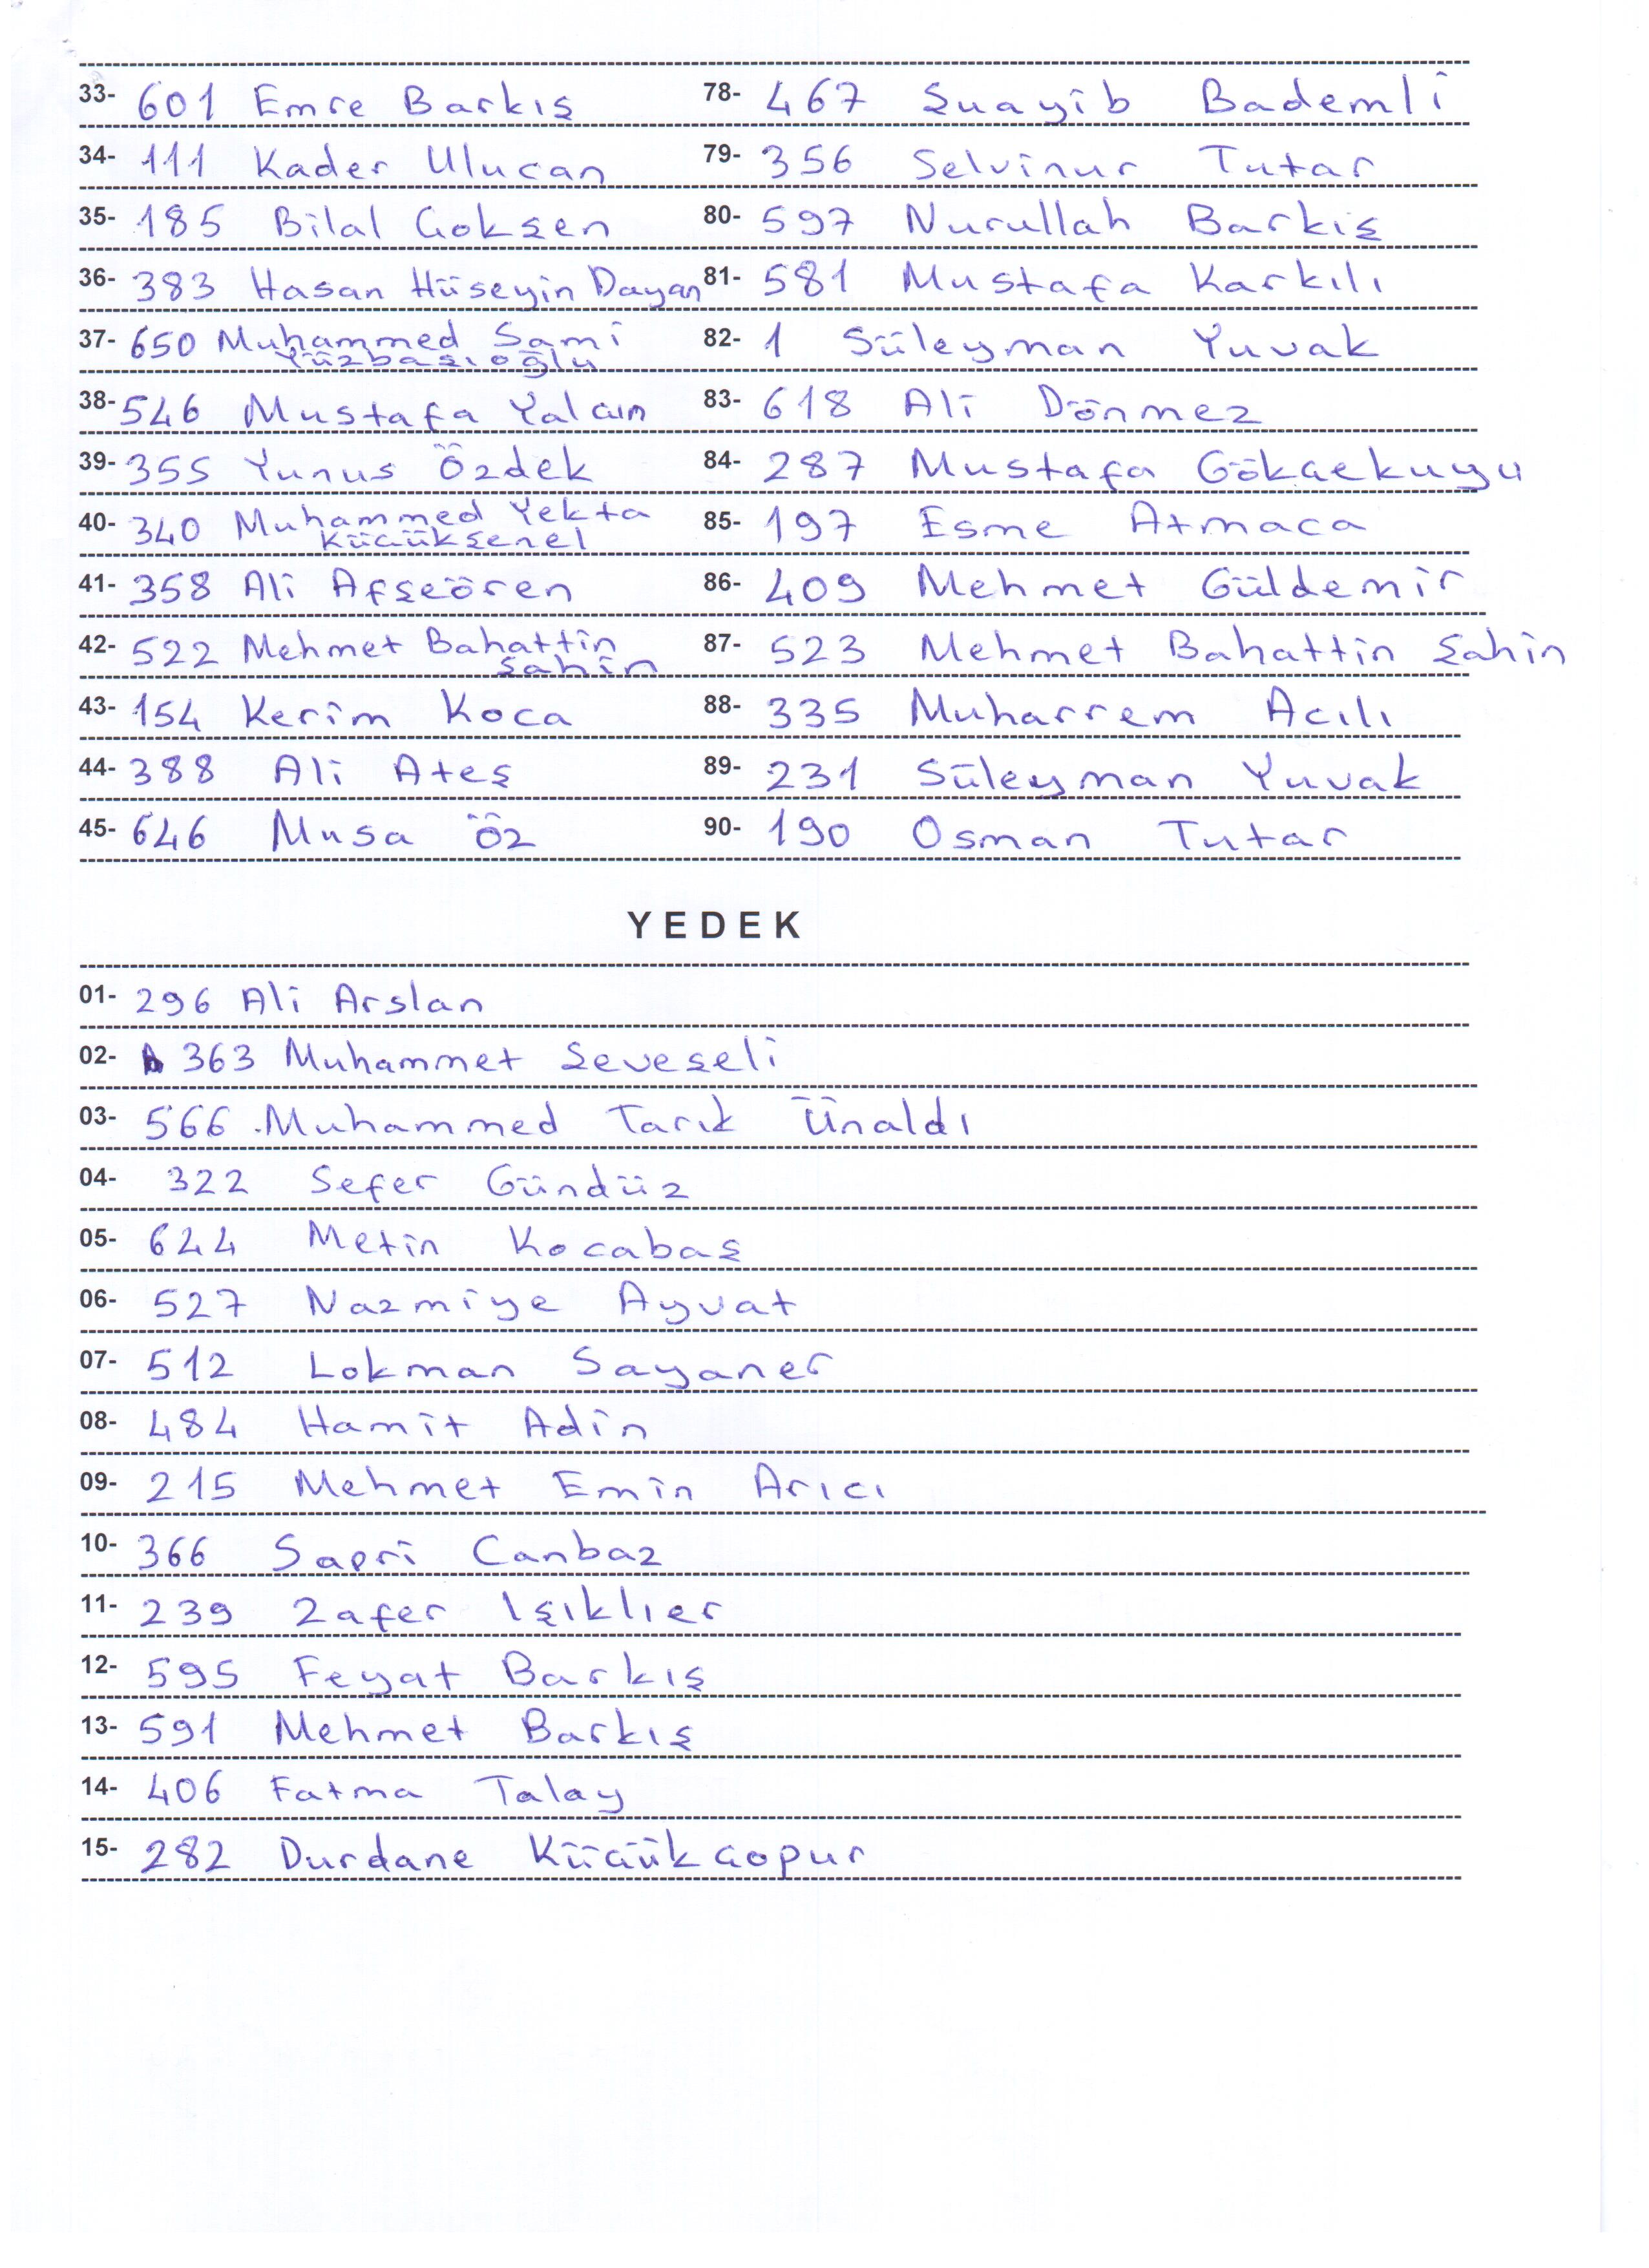 33- 601 Emre Barkış
34- 111 Kader Ulucan
35- 185 Bilal Gokşen
36- 383 Hasan Hüseyin Dayan
37- 650 Muhammed Sami
Yüzbaşıoğlu
38- 546 Mustafa Yalçın
39- 355 Yunus Özdek
40- 340 Muhammed Yekta
Küçükşenel
41- 358 Ali Afşeören
42- 522 Mehmet Bahattin
Şahin
43- 154 Kerim Koca
44- 388 Ali Ateş
45- 646 Musa Öz
78- 467 Şuayib Bademli
79- 356 Selvinur Tutar
80- 597 Nurullah Barkiş
81- 581 Mustafa Karkılı
82- 1 Süleyman Yuvak
83- 618 Ali Dönmez
84- 287 Mustafa Gökçekuyu
85- 197 Esme Atmaca
86- 409 Mehmet Güldemir
87- 523 Mehmet Bahattin Şahin
88- 335 Muharrem Acılı
89- 231 Süleyman Yuvak
90- 190 Osman Tutar
YEDEK
01- 296 Ali Arslan
02- 363 Muhammet Seveşeli
03- 566 Muhammed Tarık Ünaldı
04- 322 Sefer Gündüz
05- 644 Metin Kocabaş
06- 527 Nazmiye Ayvat
07- 512 Lokman Sayaner
08- 484 Hamit Adin
09- 215 Mehmet Emin Arıcı
10- 366 Sapri Canbaz
11- 239 Zafer Işıklıer
12- 595 Feyat Barkış
13- 591 Mehmet Barkış
14- 406 Fatma Talay
15- 282 Durdane Küçükçopur